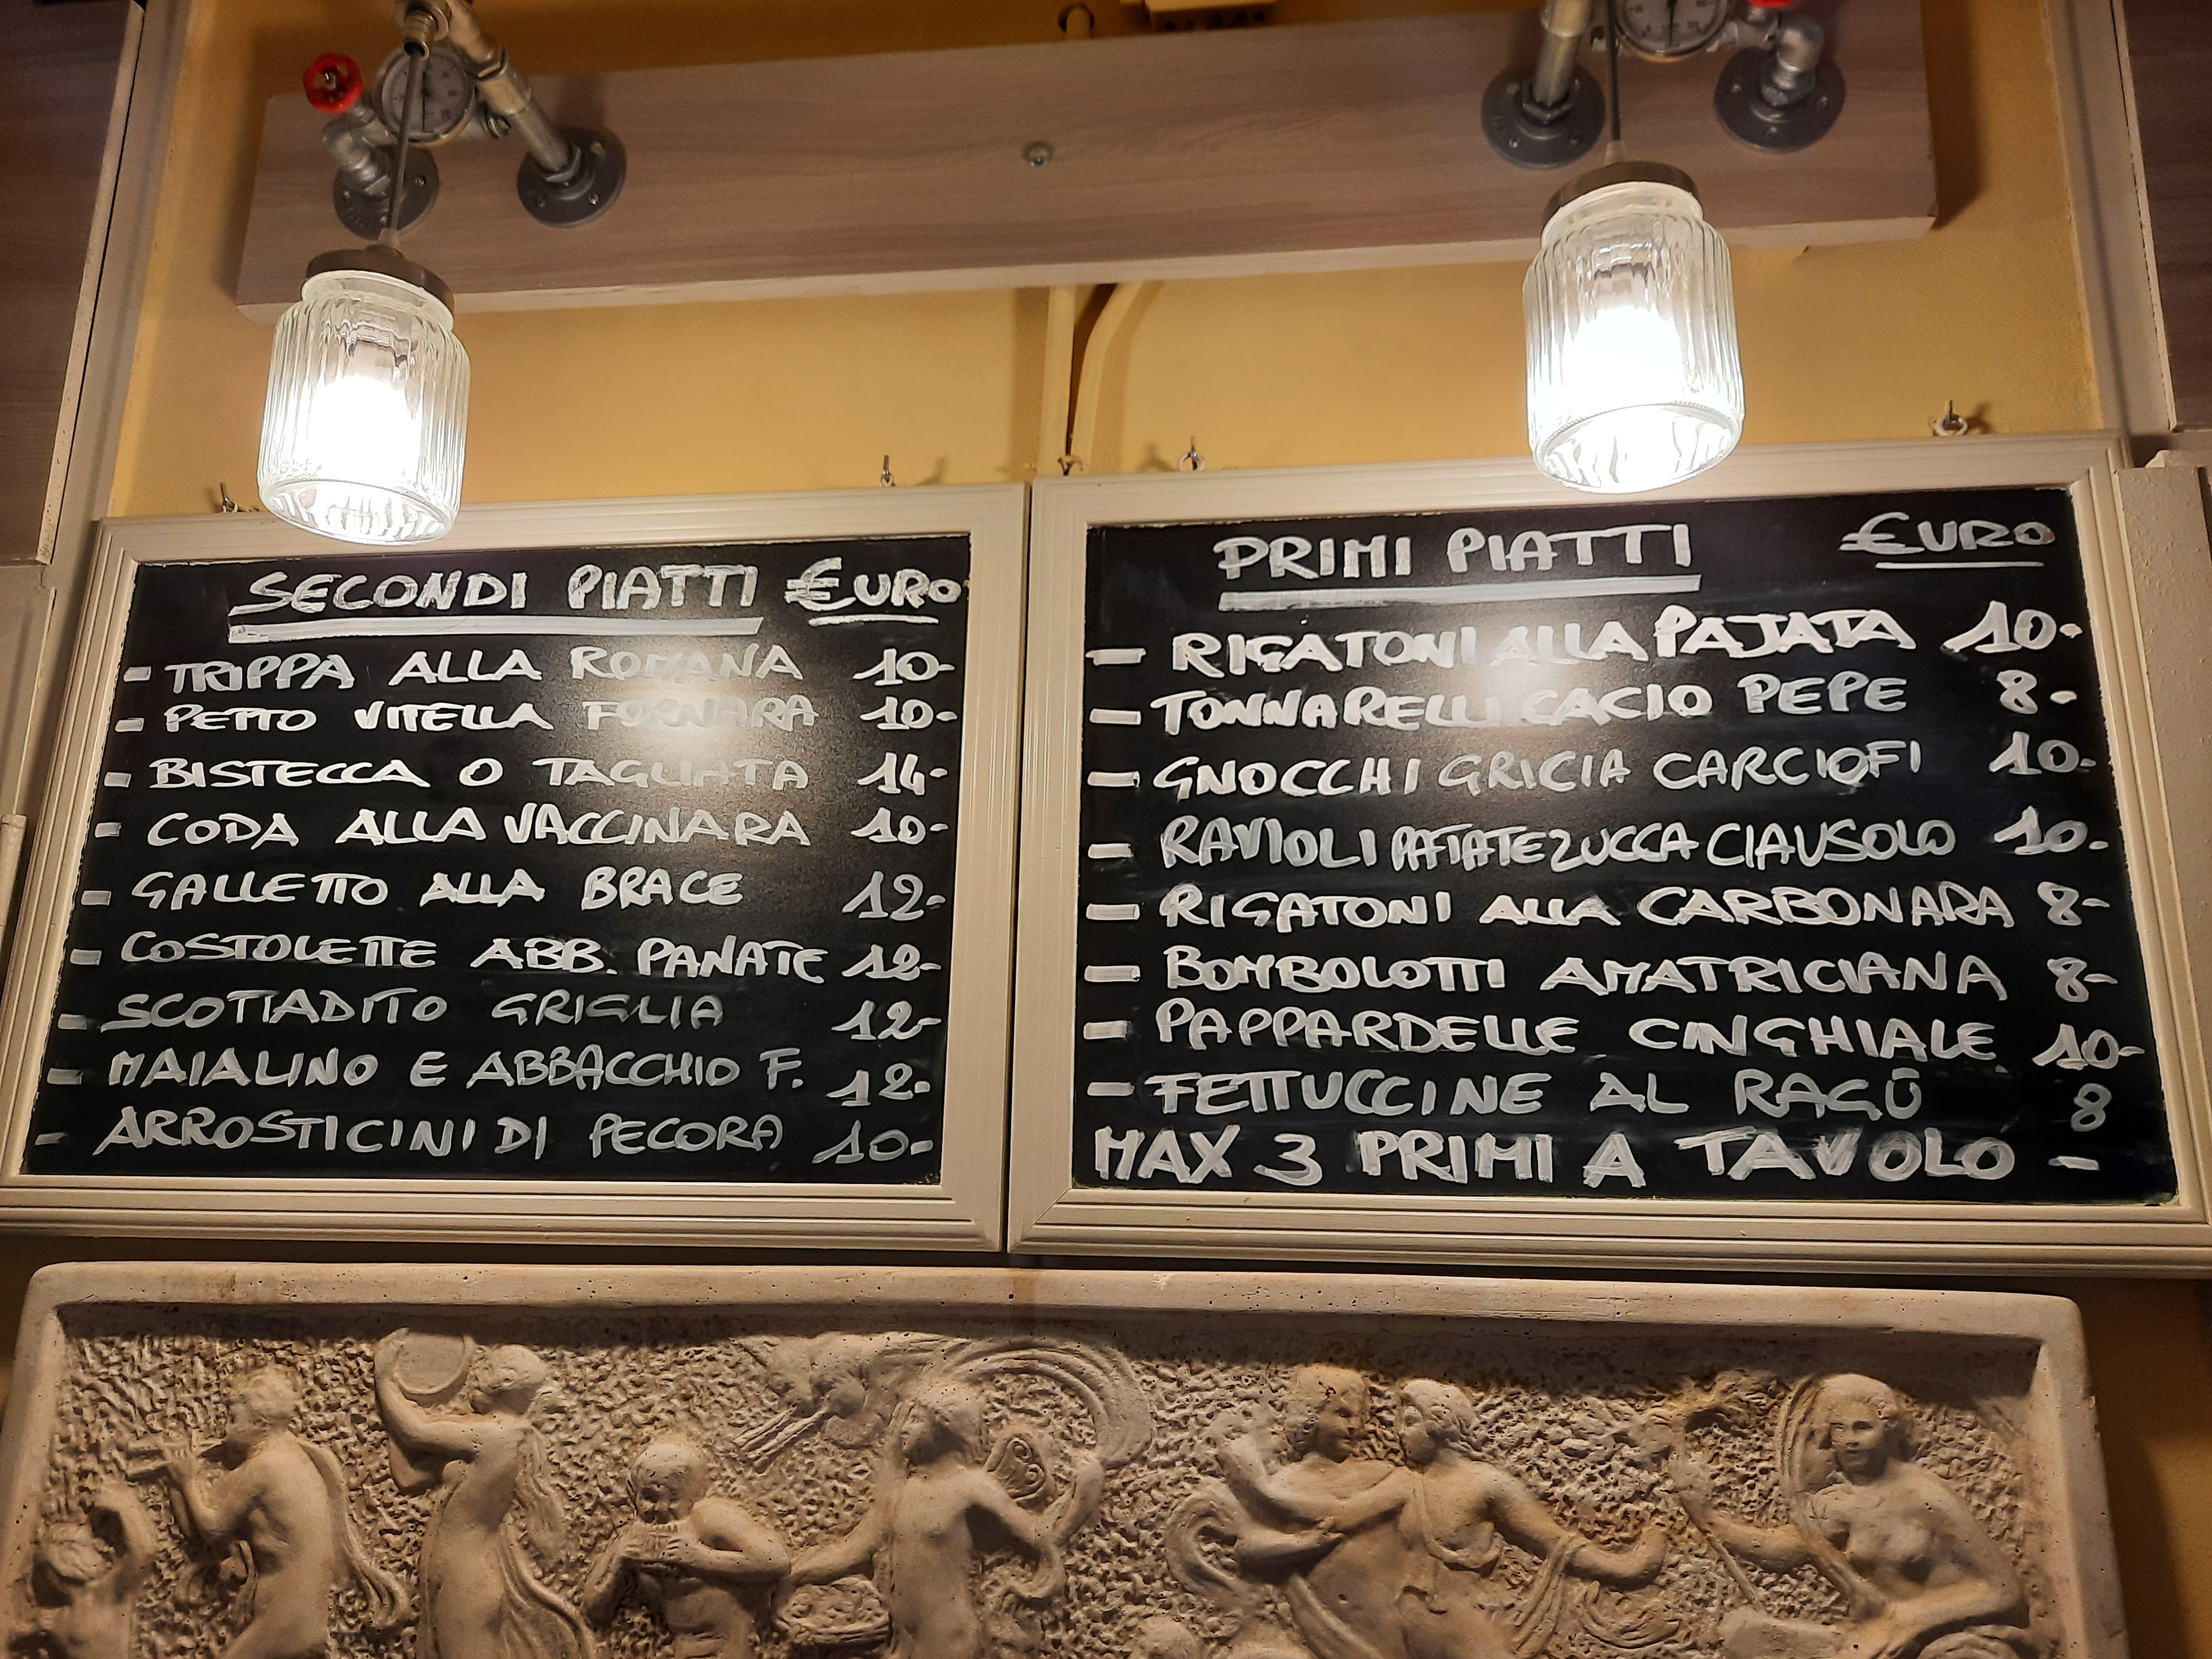 SECONDI PIATTI €URO
- TRIPPA ALLA ROMANA 10-
- PETTO VITELLA FORNARA 10-
- BISTECCA O TAGLIATA 14-
- CODA ALLA VACCINARA 10-
- GALLETTO ALLA BRACE 12-
- COSTOLETTE ABB. PANATE 12-
- SCOTTADITO GRIGLIA 12-
- MAIALINO E ABBACCHIO F. 12-
- ARROSTICINI DI PECORA 10-
PRIMI PIATTI €URO
- RIGATONI ALLA PAJATA 10-
- TONNARELLI CACIO PEPE 8-
- GNOCCHI GRICIA CARCIOFI 10-
- RAVIOLI PATATE ZUCCA CIAUSOLO 10-
- RIGATONI ALLA CARBONARA 8-
- BOMBOLOTTI AMATRICIANA 8-
- PAPPARDELLE CINGHIALE 10-
- FETTUCCINE AL RAGÚ 8
MAX 3 PRIMI A TAVOLO -